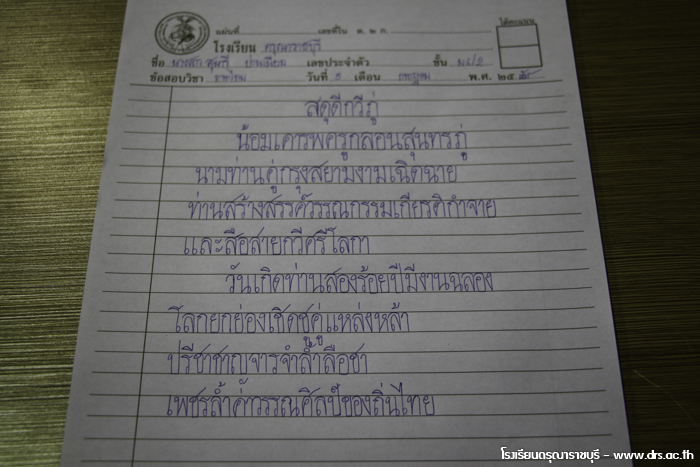 ได้คะแนน
แผ่นที่ เลขที่ใน ต.๒ ก.
โรงเรียน ดรุณาราชบุรี
ชื่อ เลขประจำตัว ชั้น ม.๔/๑
ข้อสอบวิชา ภาษาไทย วันที่ ๕ เดือน กรกฎาคม พ.ศ. ๒๕
สดุดีกวีภู่
น้อมเคารพครูกลอนสุนทรภู่
นามท่านคู่กรุงสยามงามเฉิดฉาย
ท่านสร้างสรรค์วรรณกรรมเกียรติกำจาย
และลือสายกวีศรีโลกา
วันเกิดท่านสองร้อยปีมีงานฉลอง
โลกยกย่องเชิดชูคู่แหล่งหล้า
ปรีชาชาญจารจำล้ำลือชา
เพชรล้ำค่าวรรณศิลป์ของถิ่นไทย
โรงเรียนดรุณาราชบุรี - www.drs.ac.th